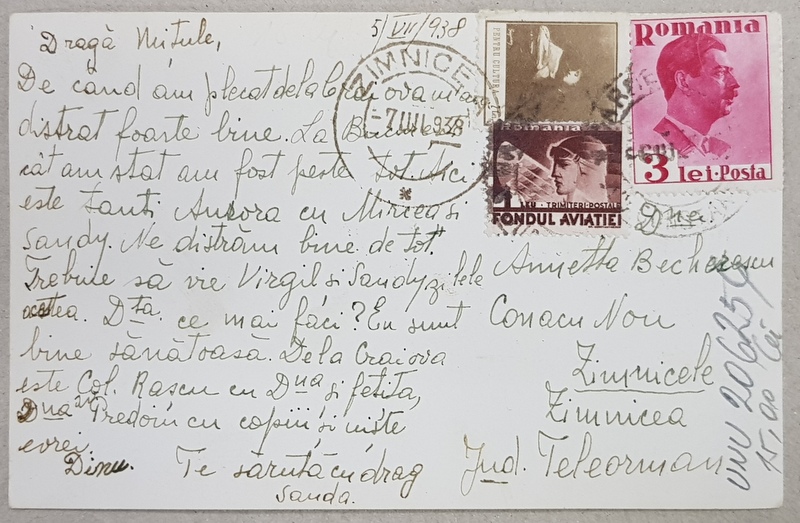 5/VII/938
Dragă Mitule,
De când am plecat dela Craiova m'am
distrat foarte bine. La București
cât am stat am fost peste tot. Aici
este tanti Aurora cu Mircea și
Sandy. Ne distrăm bine de tot.
Trebuie să vie Virgil și Sandy zilele
astea. Dta. ce mai faci? Eu sunt
bine sănătoasă. Dela Craiova
este Col. Rascu cu Dna și fetița,
Dna Predoiu cu copiii și niște
evrei.
Dinu. Te sărută cu drag
Sanda.
ZIMNICE
-7 IUL 938
PENTRU CULTURA
Romania
3 lei·Posta
Romania
1 LEU · TRIMITERI-POSTALE
FONDUL AVIAȚIEI
Dnei
Annetta Becherescu
Conacu Nou
Zimnicele
Zimnicea
Jud. Teleorman
VNU 20625 G
15,00 lei